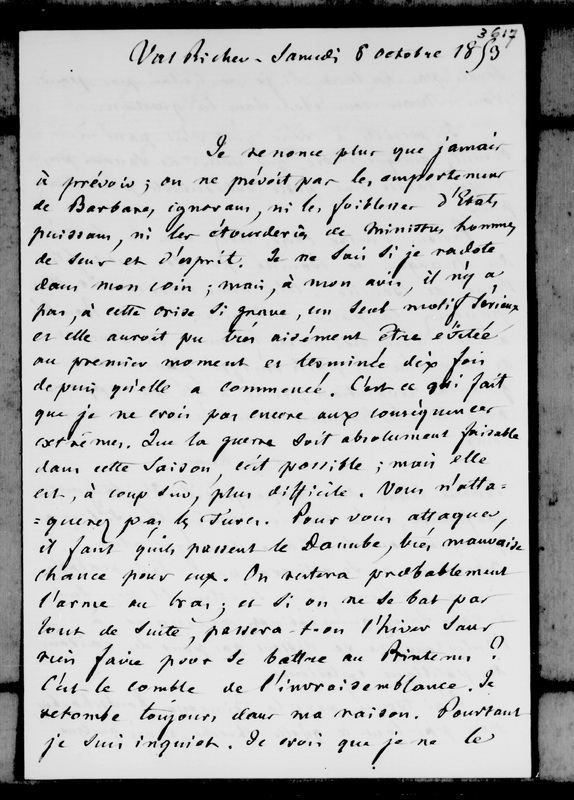 3617
Val Richer - Samedi 8 octobre 1853
Je renonce plus que jamais
à prévoir ; on ne prévoit pas les emportemens
de Barbares ignorans, ni les foiblesses d'Etats
puissans, ni les étourderies de Ministres hommes
de sens et d'esprit. Je ne sais si je radote
dans mon coin ; mais, à mon avis, il n'y a
pas, à cette crise si grave, un seul motif sérieux
et elle auroit pu très aisément être évitée
au premier moment et terminée dix fois
depuis qu'elle a commencé. C'est ce qui fait
que je ne crois pas encore aux conséquences
extrêmes. Que la guerre soit absolument faisable
dans cette saison, c'est possible ; mais elle
est, à coup sûr, plus difficile. Vous n'atta-
=querez pas les Turcs. Pour vous attaquer,
il faut qu'ils passent le Danube, très mauvaise
chance pour eux. On restera probablement
l'arme au bras ; et si on ne se bat pas
tout de suite, passera-t-on l'hiver sans
rien faire pour se battre au Printems ?
C'est le comble de l'invraisemblance. Je
retombe toujours dans ma raison. Pourtant
je suis inquiet. Je crois que je ne le